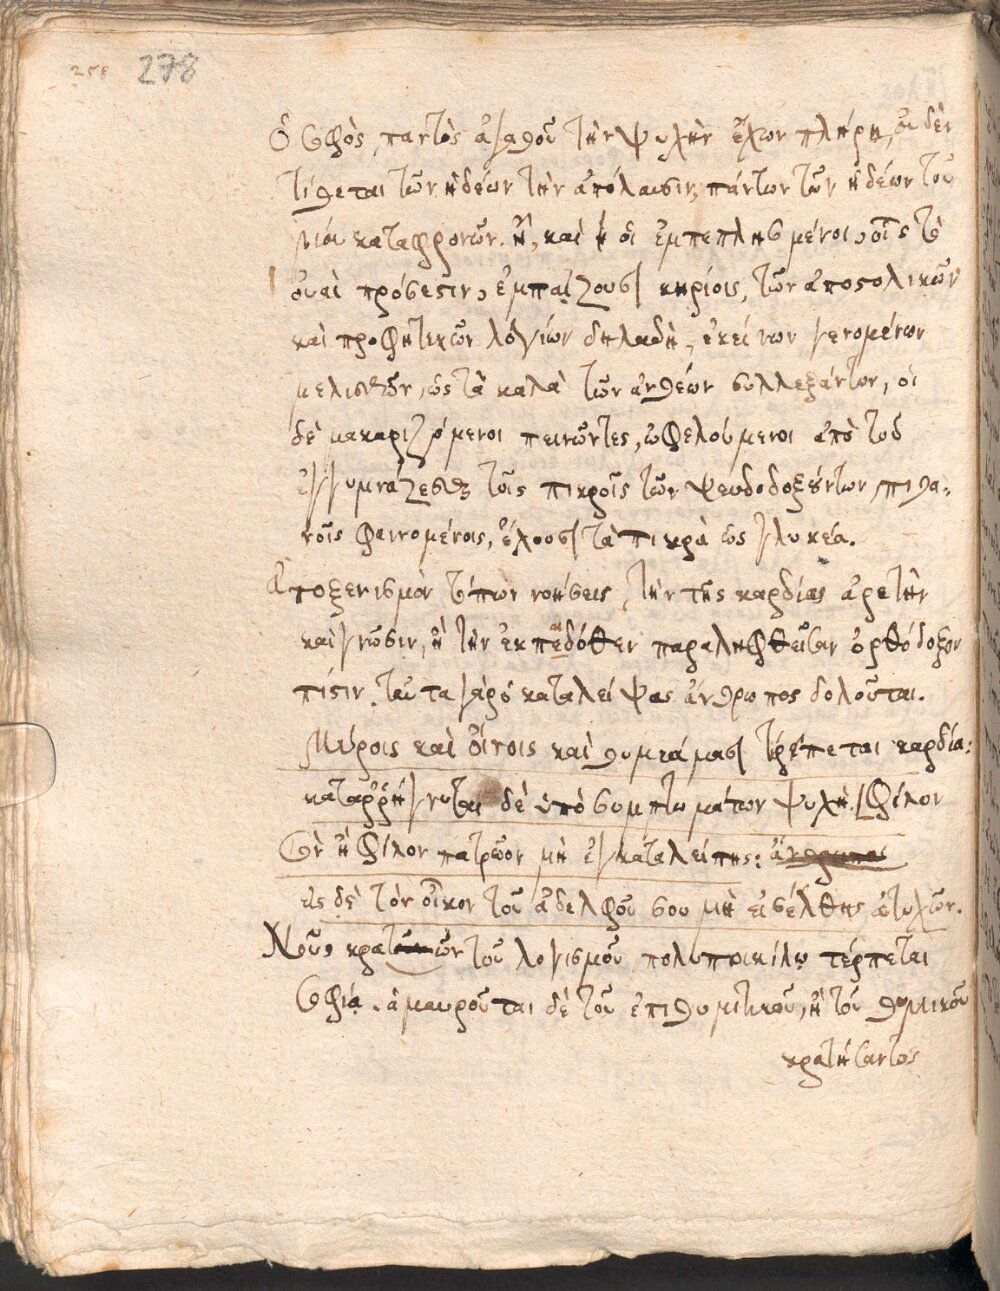 278
ὁ σοφὸς, παντὸς ἀγαθοῦ τὴν ψυχὴν ἔχων πλήρη, οὐδὲν
τίθεται τῶν ἡδέων τὴν ἀπόλαυσιν, πάντων τῶν ἡδέων τοῦ
βίου καταφρονῶν. ἢ, καὶ οἱ ἐμπεπλησμένοι, οἷς τὸ
οὐαὶ πρόσεστιν, ἐμπαίζουσι κηρίοις, τῶν ἀποστολικῶν
καὶ προφητικῶν λογίων δηλαδὴ, ἐκείνων γενομένων
μελισσῶν, ὡς τὰ καλὰ τῶν ἀνθέων συλλεξάντων, οἱ
δὲ μακαριζόμενοι πεινῶντες, ὠφελούμενοι ἀπὸ τοῦ
ἐγγυμνάζεσθαι τοῖς πικροῖς τῶν ψευδοδοξούντων, πιθα-
νοῖς φαινομένοις, ἕλουσι τὰ πικρὰ ὡς γλυκέα.
Ἀποξενισμὸν τόπων νοήσεις, τὴν τῆς καρδίας ἀρετὴν
καὶ γνῶσιν, ἢ τὴν ἐκπαιδόθεν παραληφθεῖσαν ὀρθόδοξον
πίστιν. ταῦτα γὰρ ὁ καταλείψας ἄνθρωπος δολοῦται.
Μύροις καὶ οἴνοις καὶ θυμιάμασι τέρπεται καρδία:
καταρρήγνυται δὲ ὑπὸ συμπτωμάτων ψυχή. Φίλον
σὸν ἢ φίλον πατρῷον μὴ ἐγκαταλείπης:
εἰς δὲ τὸν οἶκον τοῦ ἀδελφοῦ σου μὴ εἰσέλθης ἀτυχῶν.
Νοῦς κρατῶν τοῦ λογισμοῦ, πολυποικίλῳ τέρπεται
σοφίᾳ. ἀμαυροῦται δὲ τοῦ ἐπιθυμητικοῦ, ἢ τοῦ θυμικοῦ
κρατήσαντος